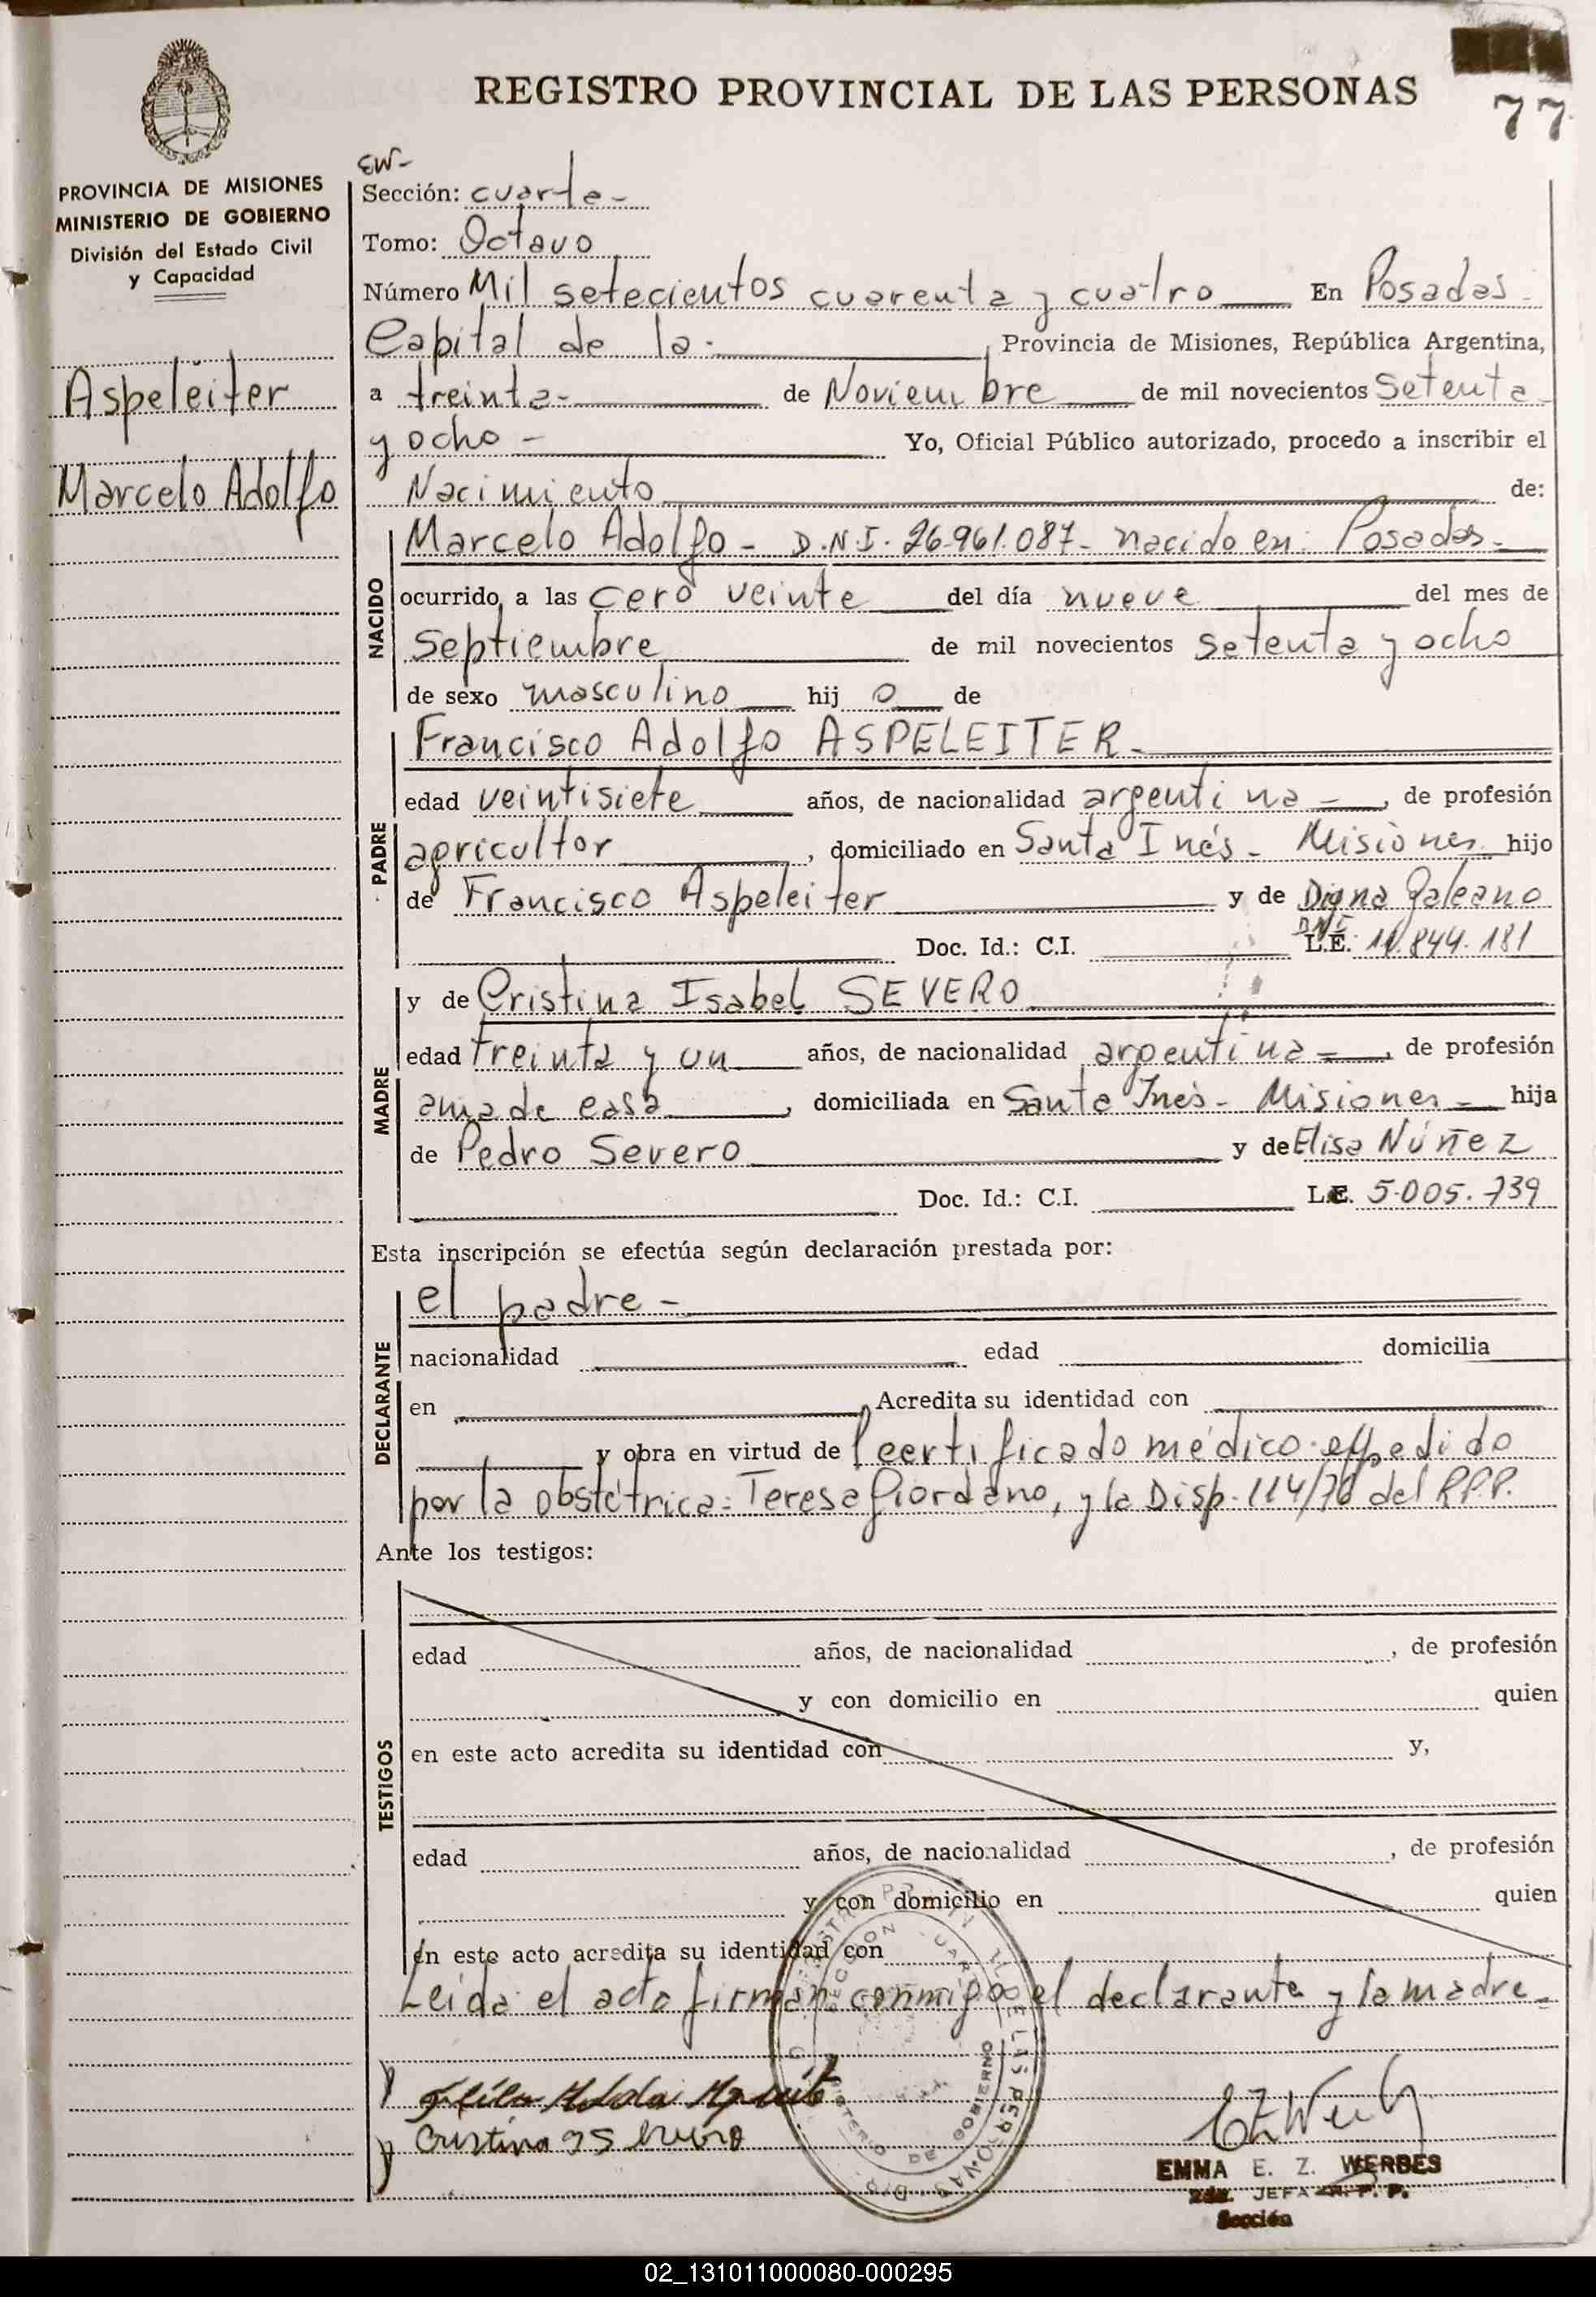 REGISTRO PROVINCIAL DE LAS PERSONAS
77
PROVINCIA DE MISIONES
MINISTERIO DE GOBIERNO
División del Estado Civil
y Capacidad
Aspeleiter
Marcelo Adolfo
EW-
Sección: cuarta-
Tomo: Octavo
Número Mil setecientos cuarenta y cuatro En Posadas-
Capital de la- Provincia de Misiones, República Argentina,
a treinta- de Noviembre de mil novecientos setenta
y ocho- Yo, Oficial Público autorizado, procedo a inscribir el
Nacimiento de:
NACIDO
Marcelo Adolfo- D.N.I. 26.961.087- nacido en: Posadas-
ocurrido, a las cero veinte del día nueve del mes de
septiembre de mil novecientos setenta y ocho
de sexo masculino hij o de
PADRE
Francisco Adolfo ASPELEITER-
edad veintisiete años, de nacionalidad argentina-, de profesión
agricultor, domiciliado en Santa Inés- Misiones hijo
de Francisco Aspeleiter y de Digna Galeano
Doc. Id.: C.I. DNI L.E. 11.844.181
MADRE
y de Cristina Isabel SEVERO
edad treinta y un años, de nacionalidad argentina-, de profesión
ama de casa, domiciliada en Santa Inés- Misiones- hija
de Pedro Severo y de Elisa Núñez
Doc. Id.: C.I. L.C. 5.005.739
Esta inscripción se efectúa según declaración prestada por:
DECLARANTE
el padre-
nacionalidad edad domicilia
en , Acredita su identidad con
y obra en virtud de certificado médico expedido
por la obstétrica: Teresa Giordano, y la Disp. 114/78 del R.P.P.
Ante los testigos:
TESTIGOS
edad años, de nacionalidad , de profesión
y con domicilio en quien
en este acto acredita su identidad con y,
edad años, de nacionalidad , de profesión
y con domicilio en quien
en este acto acredita su identidad con
Leída el acto firman conmigo el declarante y la madre-
EMMA E. Z. WERBES
2da. JEFA R. P. P.
Sección
02_131011000080-000295